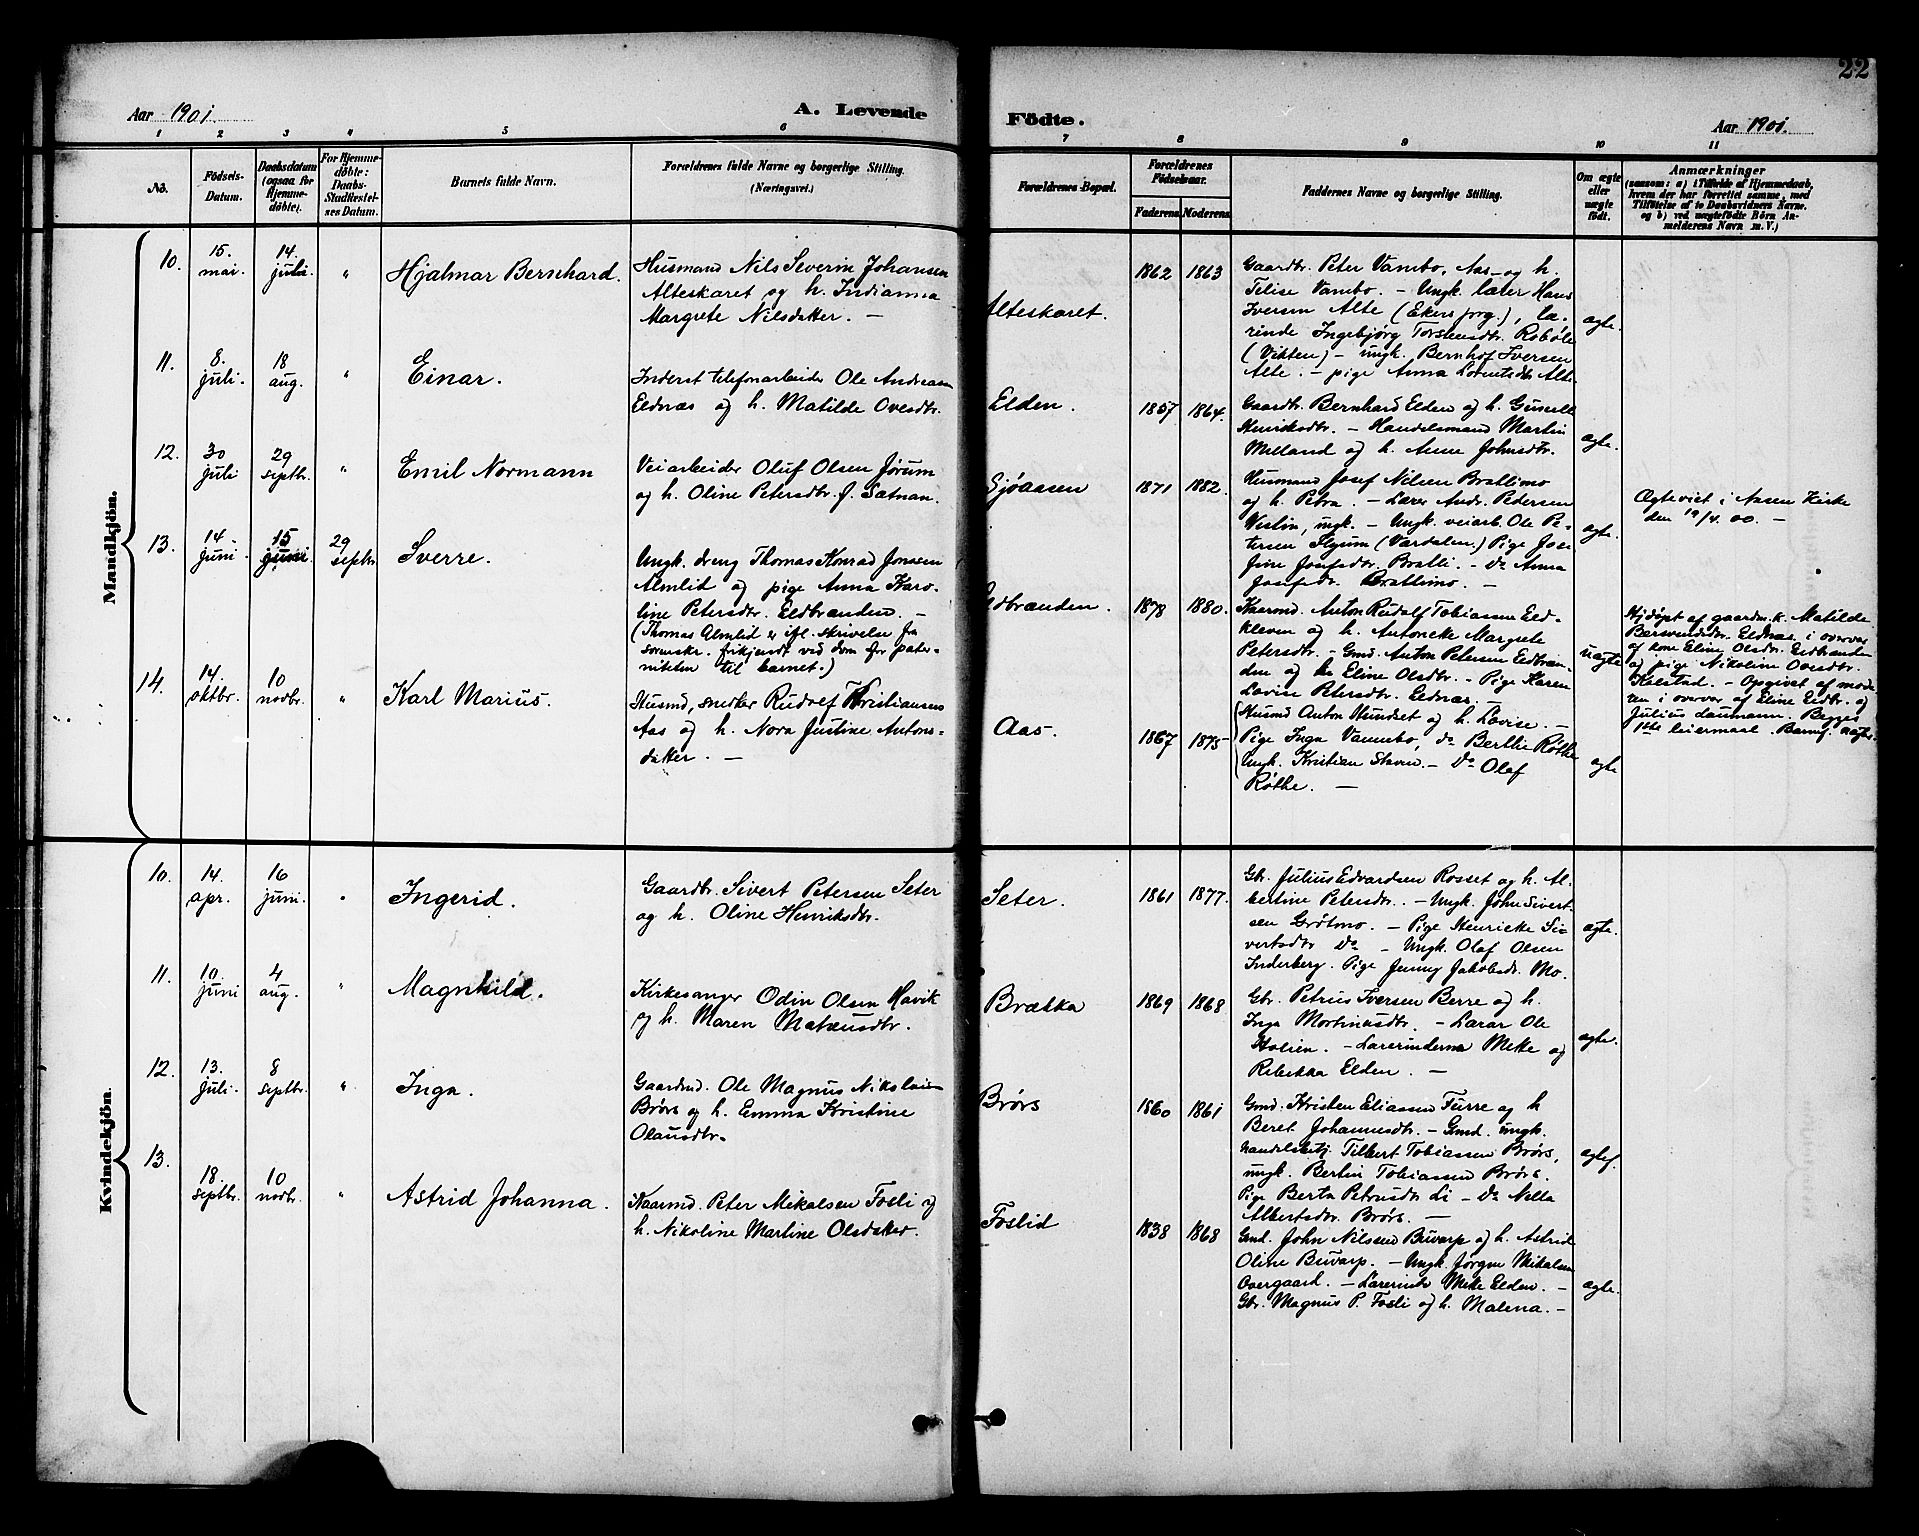 22
Aar 1901.
A. Levende
Födte.
Aar 1901.
1 2 3 4 5 6 7 8 9 10 11
No.
Födsels-
Datum.
Daabsdatum
(ogsaa for
Hjemme-
döbte).
For Hjemme-
döbte:
Daabs-
Stadfæstel-
ses Datum.
Barnets fulde Navn.
Forældrenes fulde Navne og borgerlige Stilling.
(Næringsvei.)
Forældrenes Bopæl.
Forældrenes
Födselsaar.
Faderens
Moderens
Faddernes Navne og borgerlige Stilling.
Om ægte
eller
uægte
født.
Anmærkninger
(saasom: a) i Tilfælde af Hjemmedaab,
hvem der har forrettet samme, med
Tilføielse af to Daabsvidners Navne.
og b) ved uægtefödte Börn An-
melderens Navn m. V.)
Mandkjön.
10.
15.
mai.
14.
juli.
"
Hjalmar Bernhard.
Husmand Nils Severin Johansen
Alteskaret og h. Indianna
Margrete Nilsdatter. —
Alteskaret.
1862 1863
Gaardbr. Peter Vambo, Aas og h.
Telise Vambo. — Ungk. lærer Hans
Iversen Alte (Ekens prg.), læ-
rinde Ingebjørg Torstensdtr. Robøle
(Vikten) — ungk. Bernhof Iversen
Alte. — pige Anna Lorentsdtr Alte.
ægte.
11.
8.
juli.
18
aug.
"
Einar.
Inderst telefonarbeider Ole Andreasen
Eldnæs og h. Matilde Ovesdtr.
Elden.
1857 1864.
Gaardbr. Bernhard Elden og h. Gunell
Henriksdtr. — Handelsmand Martin
Melland og h. Anne Johnsdtr.
ægte.
12.
30
juli
29
septbr.
"
Emil Normann
Veiarbeider Oluf Olsen Jørum
og h. Oline Petersdtr. f. Sætnan.
Sjøaasen
1871 1882.
Husmand Josef Nilsen Brattimo
og h. Petra. — Lærer Andr. Pedersen
Vestin, ungk. — Ungk. veiarb. Ole Pe-
tersen Slyum (Værdalen.) Pige Jose
fine Josefsdtr. Bratli. — Do Anna
Josefsdr. Brattimo. —
ægte.
Ægteviet i Aasen Kirke
den 19/4. 00. —
13.
14
juni.
15
juni.
29
septbr
Sverre.
Ungk. dreng Thomas Konrad Jonssen
Almlid og pige Anna Karo-
line Petersdtr. Eldbranden. —
(Thomas Almlid er ifl. skrivelse fra
sorenskr. frikjendt ved dom for pater-
niteten til barnet.)
Eldbranden.
1878 1880.
Kaarmd. Anton Rudolf Tobiassen Eld-
kleven og h. Antonette Margrete
Petersdtr. — Gmd. Anton Petersen Eldbran-
den og h. Eline Olsdtr. — Pige Karen
Lovise Petersdtr. Eldnæs. —
uægte
Hjdøpt af gaardm.k. Matilde
Bersvendsdtr. Eldnæs i overvær
af kone Eline Olsdtr. Eldbranden
og pige Nikoline Ovesdtr.
Kelstad. — Opgivet af mode
ren i overvær af Eline Eldbr. og
Julius Laumann. Begges
1ste leiermaal.
14.
14.
oktbr.
10
novbr.
"
Karl Marius.
Husmd, snedker Rudolf Kristiansen
Aas og h. Nora Justine Antons-
datter. —
Aas.
1867 1875
Husmd Anton Hundset og h. Lovise. —
Pige Inga Vannebo, do Berthe Røthe
Ungk. Kristian Staven. — Do Olaf
Røthe. —
ægte
Kvindekjön.
10.
14.
apr.
16
juni.
"
Ingerid.
Gaardbr. Sivert Petersen Seter
og h. Oline Henriksdtr.
Seter.
1861 1877.
Gbr. Julius Edvardsen Rosset og h. Al-
bertine Petersdtr. — Ungk. John Sivert-
sen Grøtmo. — Pige Henrikke Si-
vertsdtr Do — Ungk. Olaf Olsen
Inderberg. Pige Jenny Jakobsdr. Mo.
ægte.
11.
10.
juni
4
aug.
"
Magnhild.
Kirkesanger Odin Olsen Havik
og h. Maren Mateusdtr.
Brækka
1869 1868
Gbr. Petrus Iversen Berre og h.
Inga Mortinusdtr. — Lærer Ole
Holien. — Lærerinderne Meke og
Rebekka Elden. —
ægte.
12.
13.
juli.
8
septbr.
"
Inga.
Gaardmd. Ole Magnus Nikolaisen
Brørs og h. Emma Kristine
Olausdtr.
Brørs
1860 1861
Gmd. Kristen Eliassen Furre og h
Beret Johannesdtr. — Gmd. ungk.
handelsbetj. Tilbert Tobiassen Brørs,
ungk. Bertin Tobiassen Brørs.
Pige Berta Petrusdr Li — Do Nella
Albertsdtr. Brørs. —
ægte.
13.
18.
septbr.
10
novbr.
"
Astrid Johanna.
Kaarmd. Peter Mikalsen Fosli og
h. Nikoline Martine Olsdatter.
Foslid
1838 1868
Gmd. John Nilssen Buvarp og h. Astrid
Oline Buvarp. — Ungk. Jørgen Mikalsen
Overgaard. — Lærerinde Meke Elden. —
Gbr. Magnus P. Fosli og h. Malena. —
ægte.